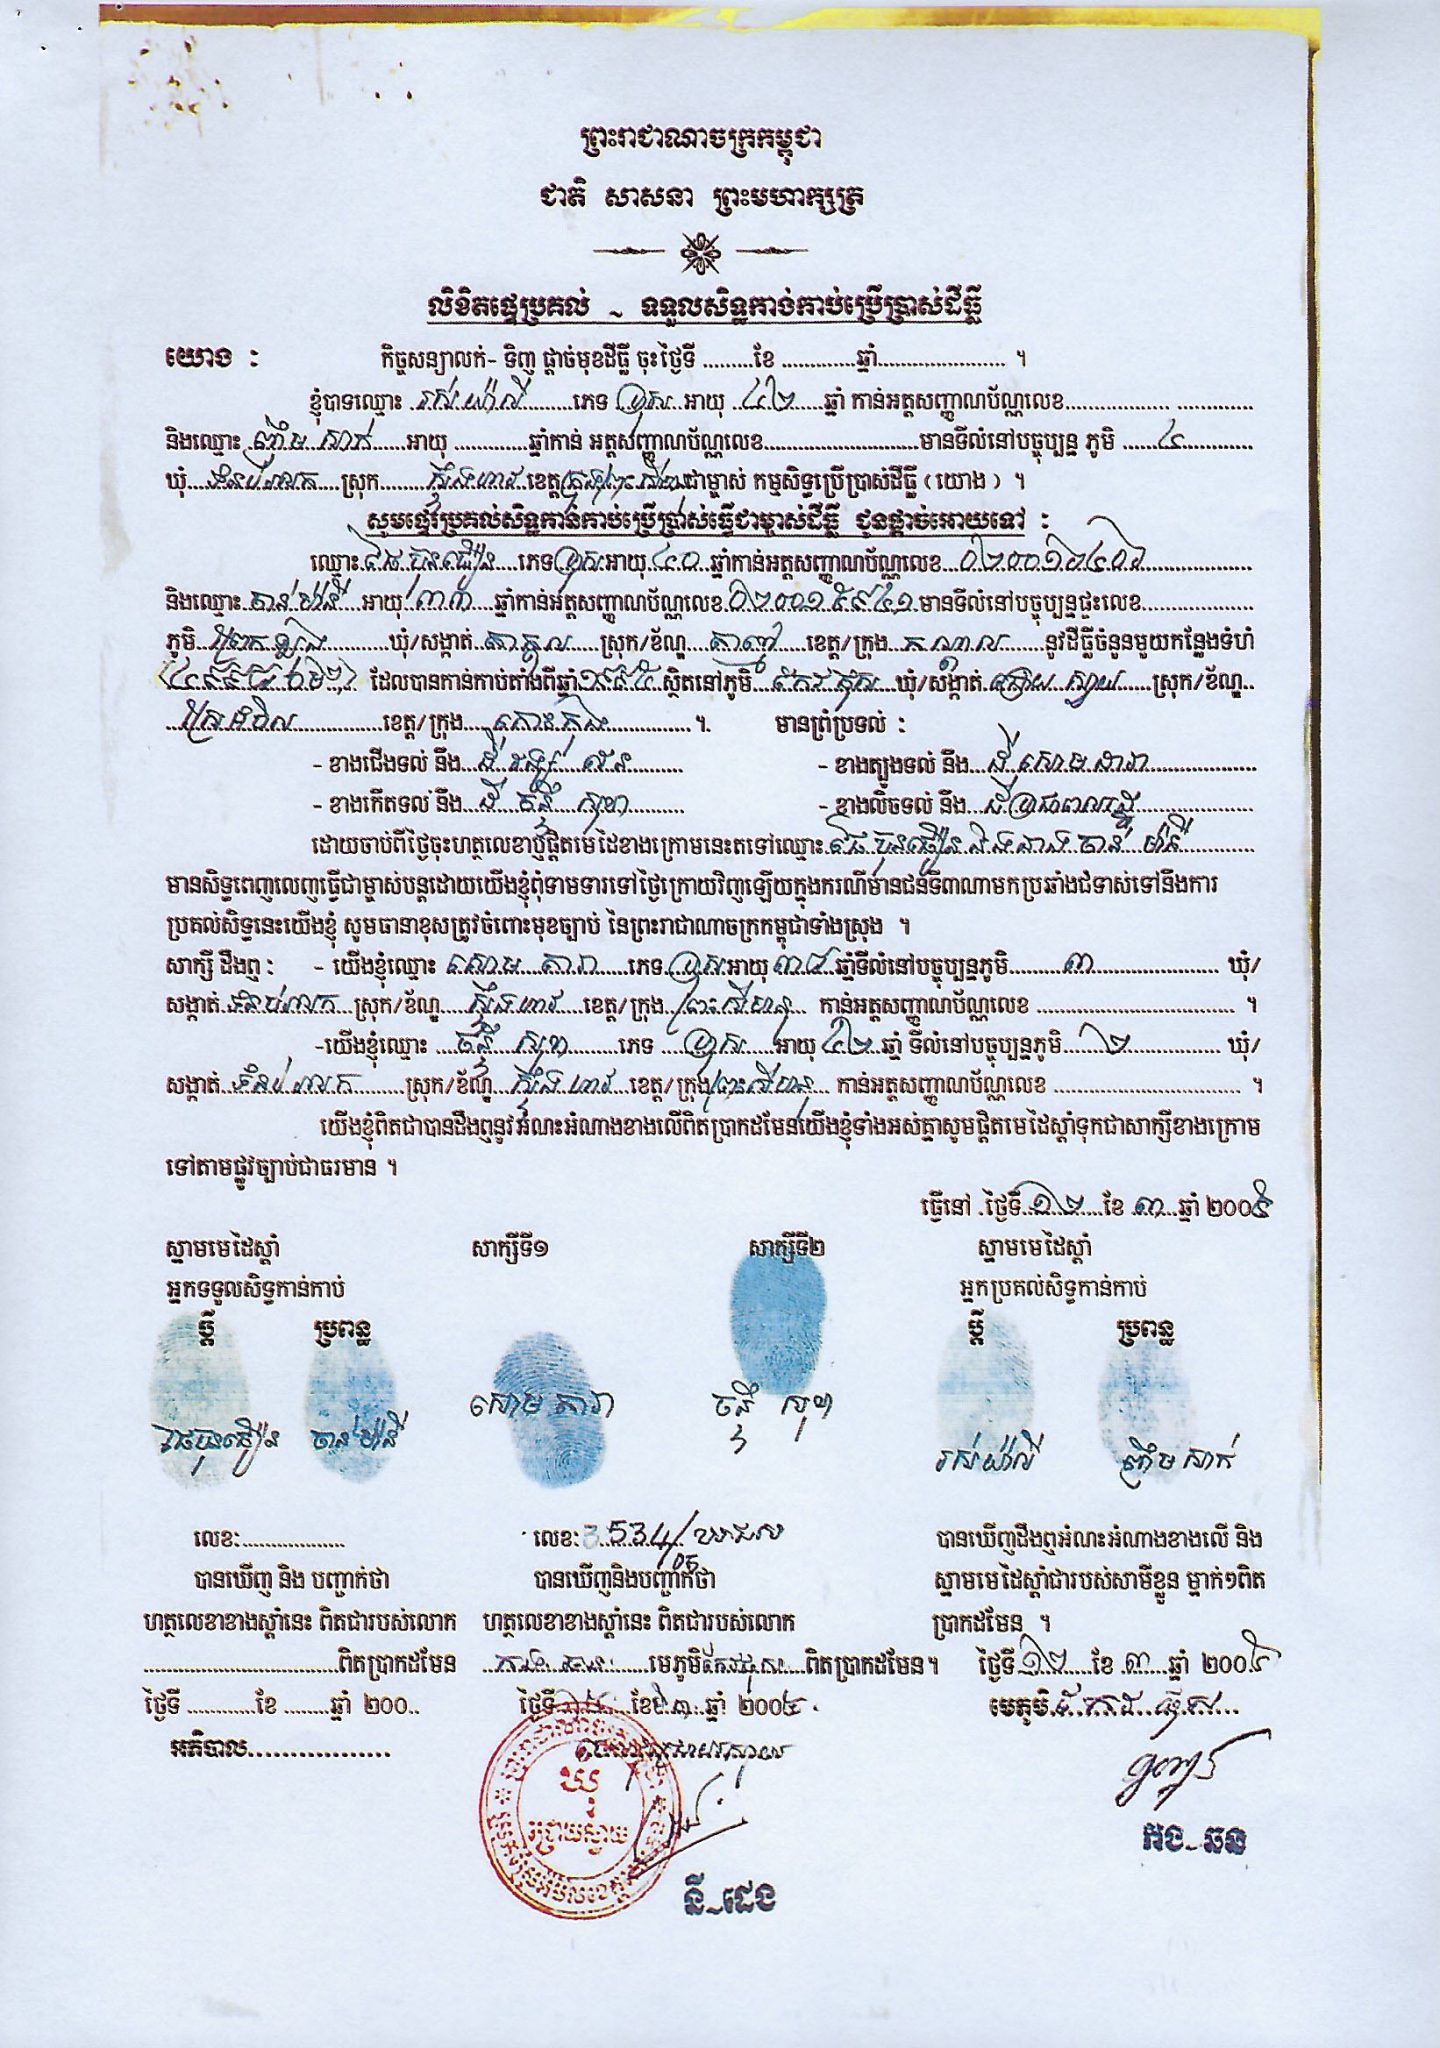 ព្រះរាជាណាចក្រកម្ពុជា
ជាតិ សាសនា ព្រះមហាក្សត្រ
លិខិតផ្ទេរប្រគល់ ~ ទទួលសិទ្ធកាន់កាប់ប្រើប្រាស់ដីធ្លី
យោង : កិច្ចសន្យាលក់- ទិញ ផ្តាច់មុខដីធ្លី ចុះថ្ងៃទី .........ខែ .............ឆ្នាំ...................... ។
ខ្ញុំបាទឈ្មោះ រស់ យ៉ាលី ភេទ ប្រុស អាយុ ៤២ ឆ្នាំ កាន់អត្តសញ្ញាណប័ណ្ណលេខ
និងឈ្មោះ ញឹម សាក់ អាយុ ............ឆ្នាំកាន់ អត្តសញ្ញាណប័ណ្ណលេខ...........................មានទីលំនៅបច្ចុប្បន្ន ភូមិ ៤
ឃុំ ទំនប់រលក ស្រុក ស្ទឹងហាវ ខេត្ត ក្រុងព្រះសីហនុ ជាម្ចាស់ កម្មសិទ្ធប្រើប្រាស់ដីធ្លី ( យោង ) ។
សូមផ្ទេរប្រគល់សិទ្ធកាន់កាប់ប្រើប្រាស់ធ្វើជាម្ចាស់ដីធ្លី ជូនផ្តាច់អោយទៅ :
ឈ្មោះ ប៊ុនធឿន ភេទ ប្រុស អាយុ ៤០ ឆ្នាំកាន់អត្តសញ្ញាណប័ណ្ណលេខ
និងឈ្មោះ ចាន់ ម៉ានី អាយុ ៣៣ ឆ្នាំកាន់អត្តសញ្ញាណប័ណ្ណលេខ មានទីលំនៅបច្ចុប្បន្នផ្ទះលេខ
ភូមិ ឃុំ/សង្កាត់ តាក្ដុល ស្រុក/ខ័ណ្ឌ តាខ្មៅ ខេត្ត/ក្រុង កណ្ដាល នូវដីធ្លីចំនួនមួយកន្លែងទំហំ
ដែលបានកាន់កាប់តាំងពីឆ្នាំ ១៩៩៥ ស្ថិតនៅភូមិ ឃុំ/សង្កាត់ ជ្រោយ ស្វាយ ស្រុក/ខ័ណ្ឌ
ស្រែអំបិល ខេត្ត/ក្រុង កោះកុង ។ មានព្រំប្រទល់ :
- ខាងជើងទល់ នឹង ដី - ខាងត្បូងទល់ នឹង ដី សោម ដារា
- ខាងកើតទល់ នឹង ដី ចន្ធី សុខា - ខាងលិចទល់ នឹង ដីប្រជាពលរដ្ឋ
ដោយចាប់ពីថ្ងៃចុះហត្ថលេខាឬផ្តិតមេដៃខាងក្រោមនេះតទៅឈ្មោះ ប៊ុនធឿន និងនាង ចាន់ ម៉ានី
មានសិទ្ធពេញលេញធ្វើជាម្ចាស់បន្តដោយយើងខ្ញុំពុំទាមទារទៅថ្ងៃក្រោយវិញឡើយក្នុងករណីមានជនទី៣ណាមកប្រឆាំងជំទាស់ទៅនឹងការ
ប្រគល់សិទ្ធនេះយើងខ្ញុំ សូមធានាខុសត្រូវចំពោះមុខច្បាប់ នៃព្រះរាជាណាចក្រកម្ពុជាទាំងស្រុង ។
សាក្សី ដឹងឮ : - យើងខ្ញុំឈ្មោះ សោម តារា ភេទ ប្រុស អាយុ ៣៨ ឆ្នាំទីលំនៅបច្ចុប្បន្នភូមិ ៣ ឃុំ/
សង្កាត់ ទំនប់រលក ស្រុក/ខ័ណ្ឌ ស្ទឹងហាវ ខេត្ត/ក្រុង ព្រះសីហនុ កាន់អត្តសញ្ញាណប័ណ្ណលេខ ............................... ។
-យើងខ្ញុំឈ្មោះ ចន្ធី សុខា ភេទ ប្រុស អាយុ ៤២ ឆ្នាំ ទីលំនៅបច្ចុប្បន្នភូមិ ២ ឃុំ/
សង្កាត់ ទំនប់រលក ស្រុក/ខ័ណ្ឌ ស្ទឹងហាវ ខេត្ត/ក្រុង ព្រះសីហនុ កាន់អត្តសញ្ញាណប័ណ្ណលេខ ............................... ។
យើងខ្ញុំពិតជាបានដឹងឮនូវអំណះអំណាងខាងលើពិតប្រាកដមែនយើងខ្ញុំទាំងអស់គ្នាសូមផ្តិតមេដៃស្តាំទុកជាសាក្សីខាងក្រោម
ទៅតាមផ្លូវច្បាប់ជាធរមាន ។
ធ្វើនៅ .ថ្ងៃទី ១២ ខែ ៣ ឆ្នាំ ២០០៥
ស្នាមមេដៃស្តាំ សាក្សីទី១ សាក្សីទី២ ស្នាមមេដៃស្តាំ
អ្នកទទួលសិទ្ធកាន់កាប់ អ្នកប្រគល់សិទ្ធកាន់កាប់
ប្តី ប្រពន្ធ ប្តី ប្រពន្ធ
ប៊ុនធឿន ចាន់ ម៉ានី សោម តារា ចន្ធី សុខា រស់ យ៉ាលី ញឹម សាក់
លេខ:................... លេខ: 3534/05 បានឃើញដឹងឮអំណះអំណាងខាងលើ និង
បានឃើញ និង បញ្ជាក់ថា បានឃើញនិងបញ្ជាក់ថា ស្នាមមេដៃស្តាំជារបស់សាមីខ្លួន ម្នាក់ៗពិត
ហត្ថលេខាខាងស្តាំនេះ ពិតជារបស់លោក ហត្ថលេខាខាងស្តាំនេះ ពិតជារបស់លោក ប្រាកដមែន ។
...............................ពិតប្រាកដមែន មេភូមិ ពិតប្រាកដមែន។ ថ្ងៃទី ១២ ខែ ៣ ឆ្នាំ ២០០៥
ថ្ងៃទី .............ខែ .........ឆ្នាំ ២០០.. ថ្ងៃទី ខែ ៣ ឆ្នាំ ២០០៥ មេភូមិ
អភិបាល.................
ឃុំ
ជ្រោយស្វាយ
នី~ដេង
កង~ឆន